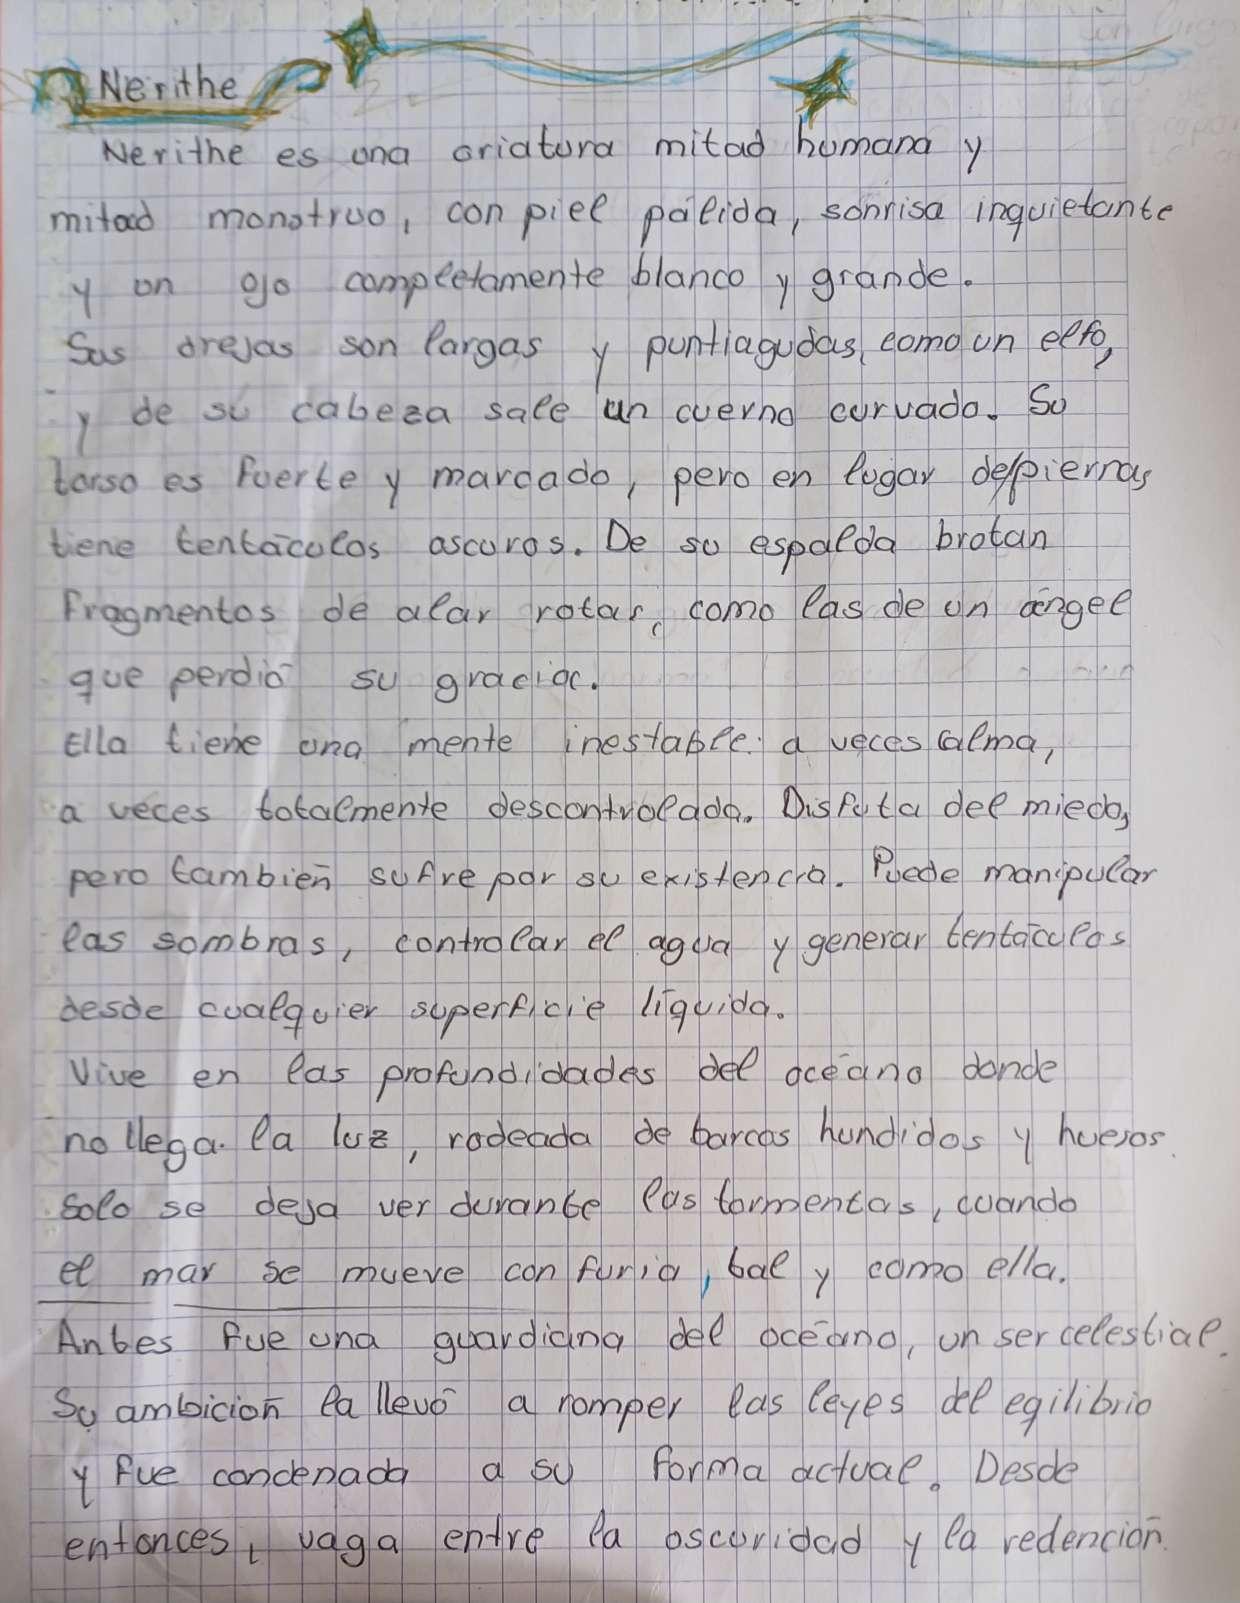 Nerithe
Nerithe es una criatura mitad humana y
mitad monstruo, con piel pálida, sonrisa inquietante
y un ojo completamente blanco y grande.
Sus orejas son largas y puntiagudas, como un elfo,
y de su cabeza sale un cuerno curvado. Su
torso es fuerte y marcado, pero en lugar de piernas
tiene tentáculos oscuros. De su espalda brotan
fragmentos de alas rotas, como las de un ángel
que perdió su gracia.
Ella tiene una mente inestable: a veces calma,
a veces totalmente descontrolada. Disfuta del miedo,
pero también sufre por su existencia. Puede manipular
las sombras, controlar el agua y generar tentáculos
desde cualquier superficie líquida.
Vive en las profundidades del océano donde
no llega la luz, rodeada de barcos hundidos y huesos.
Solo se deja ver durante las tormentas, cuando
el mar se mueve con furia, tal y como ella.
Antes fue una guardiana del océano, un ser celestial.
Su ambición la llevó a romper las leyes del egilibrio
y fue condenada a su forma actual. Desde
entonces, vaga entre la oscuridad y la redención.